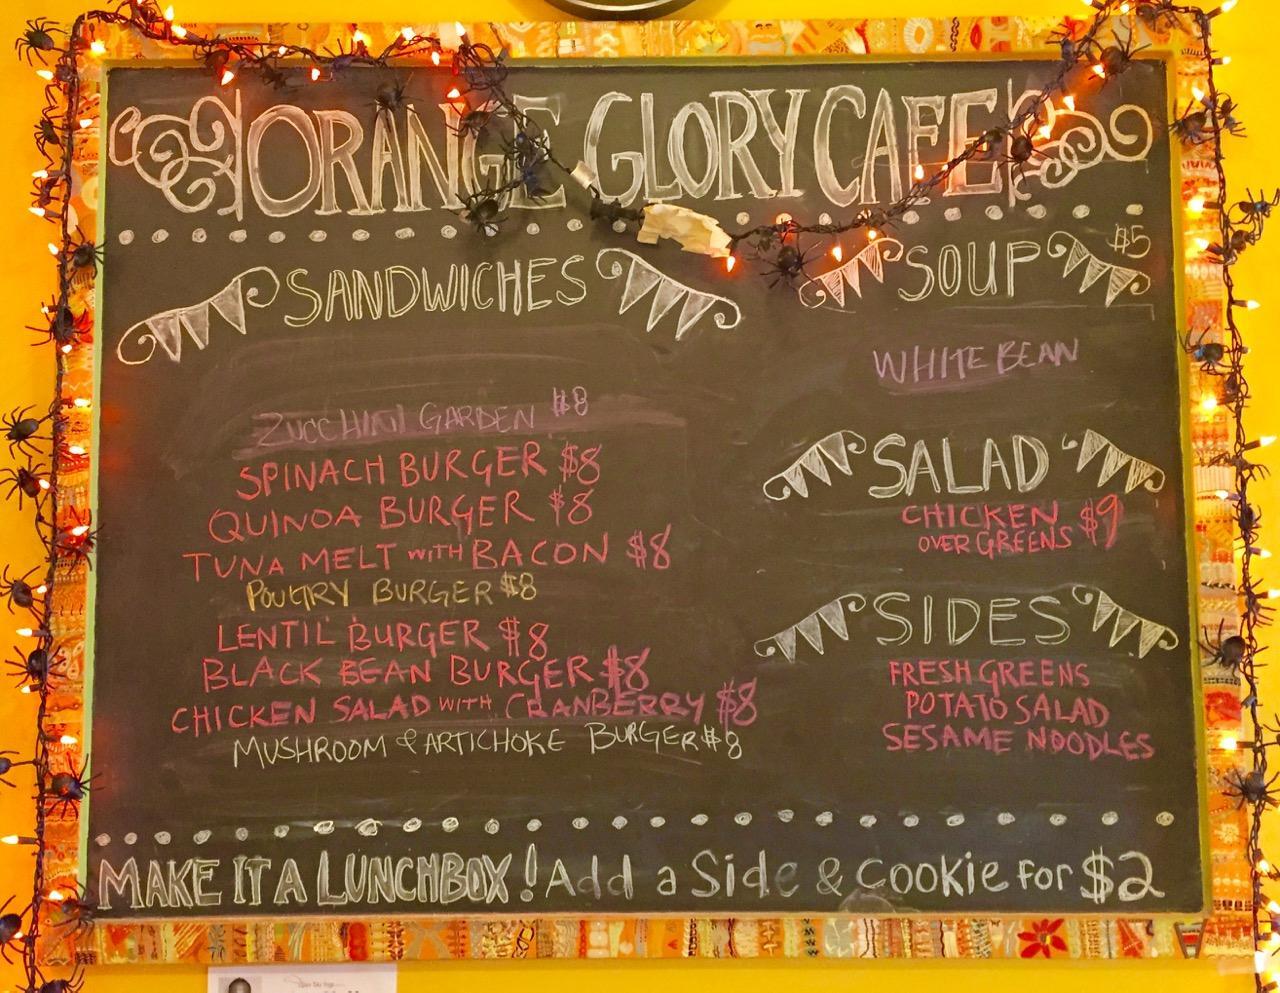 ORANGE GLORY CAFE
SANDWICHES
ZUCCHINI GARDEN $8
SPINACH BURGER $8
QUINOA BURGER $8
TUNA MELT WITH BACON $8
POULTRY BURGER $8
LENTIL BURGER $8
BLACK BEAN BURGER $8
CHICKEN SALAD WITH CRANBERRY $8
MUSHROOM & ARTICHOKE BURGER $8
SOUP $5
WHITE BEAN
SALAD
CHICKEN $9
OVER GREENS
SIDES
FRESH GREENS
POTATO SALAD
SESAME NOODLES
MAKE IT A LUNCHBOX! Add a Side & Cookie for $2